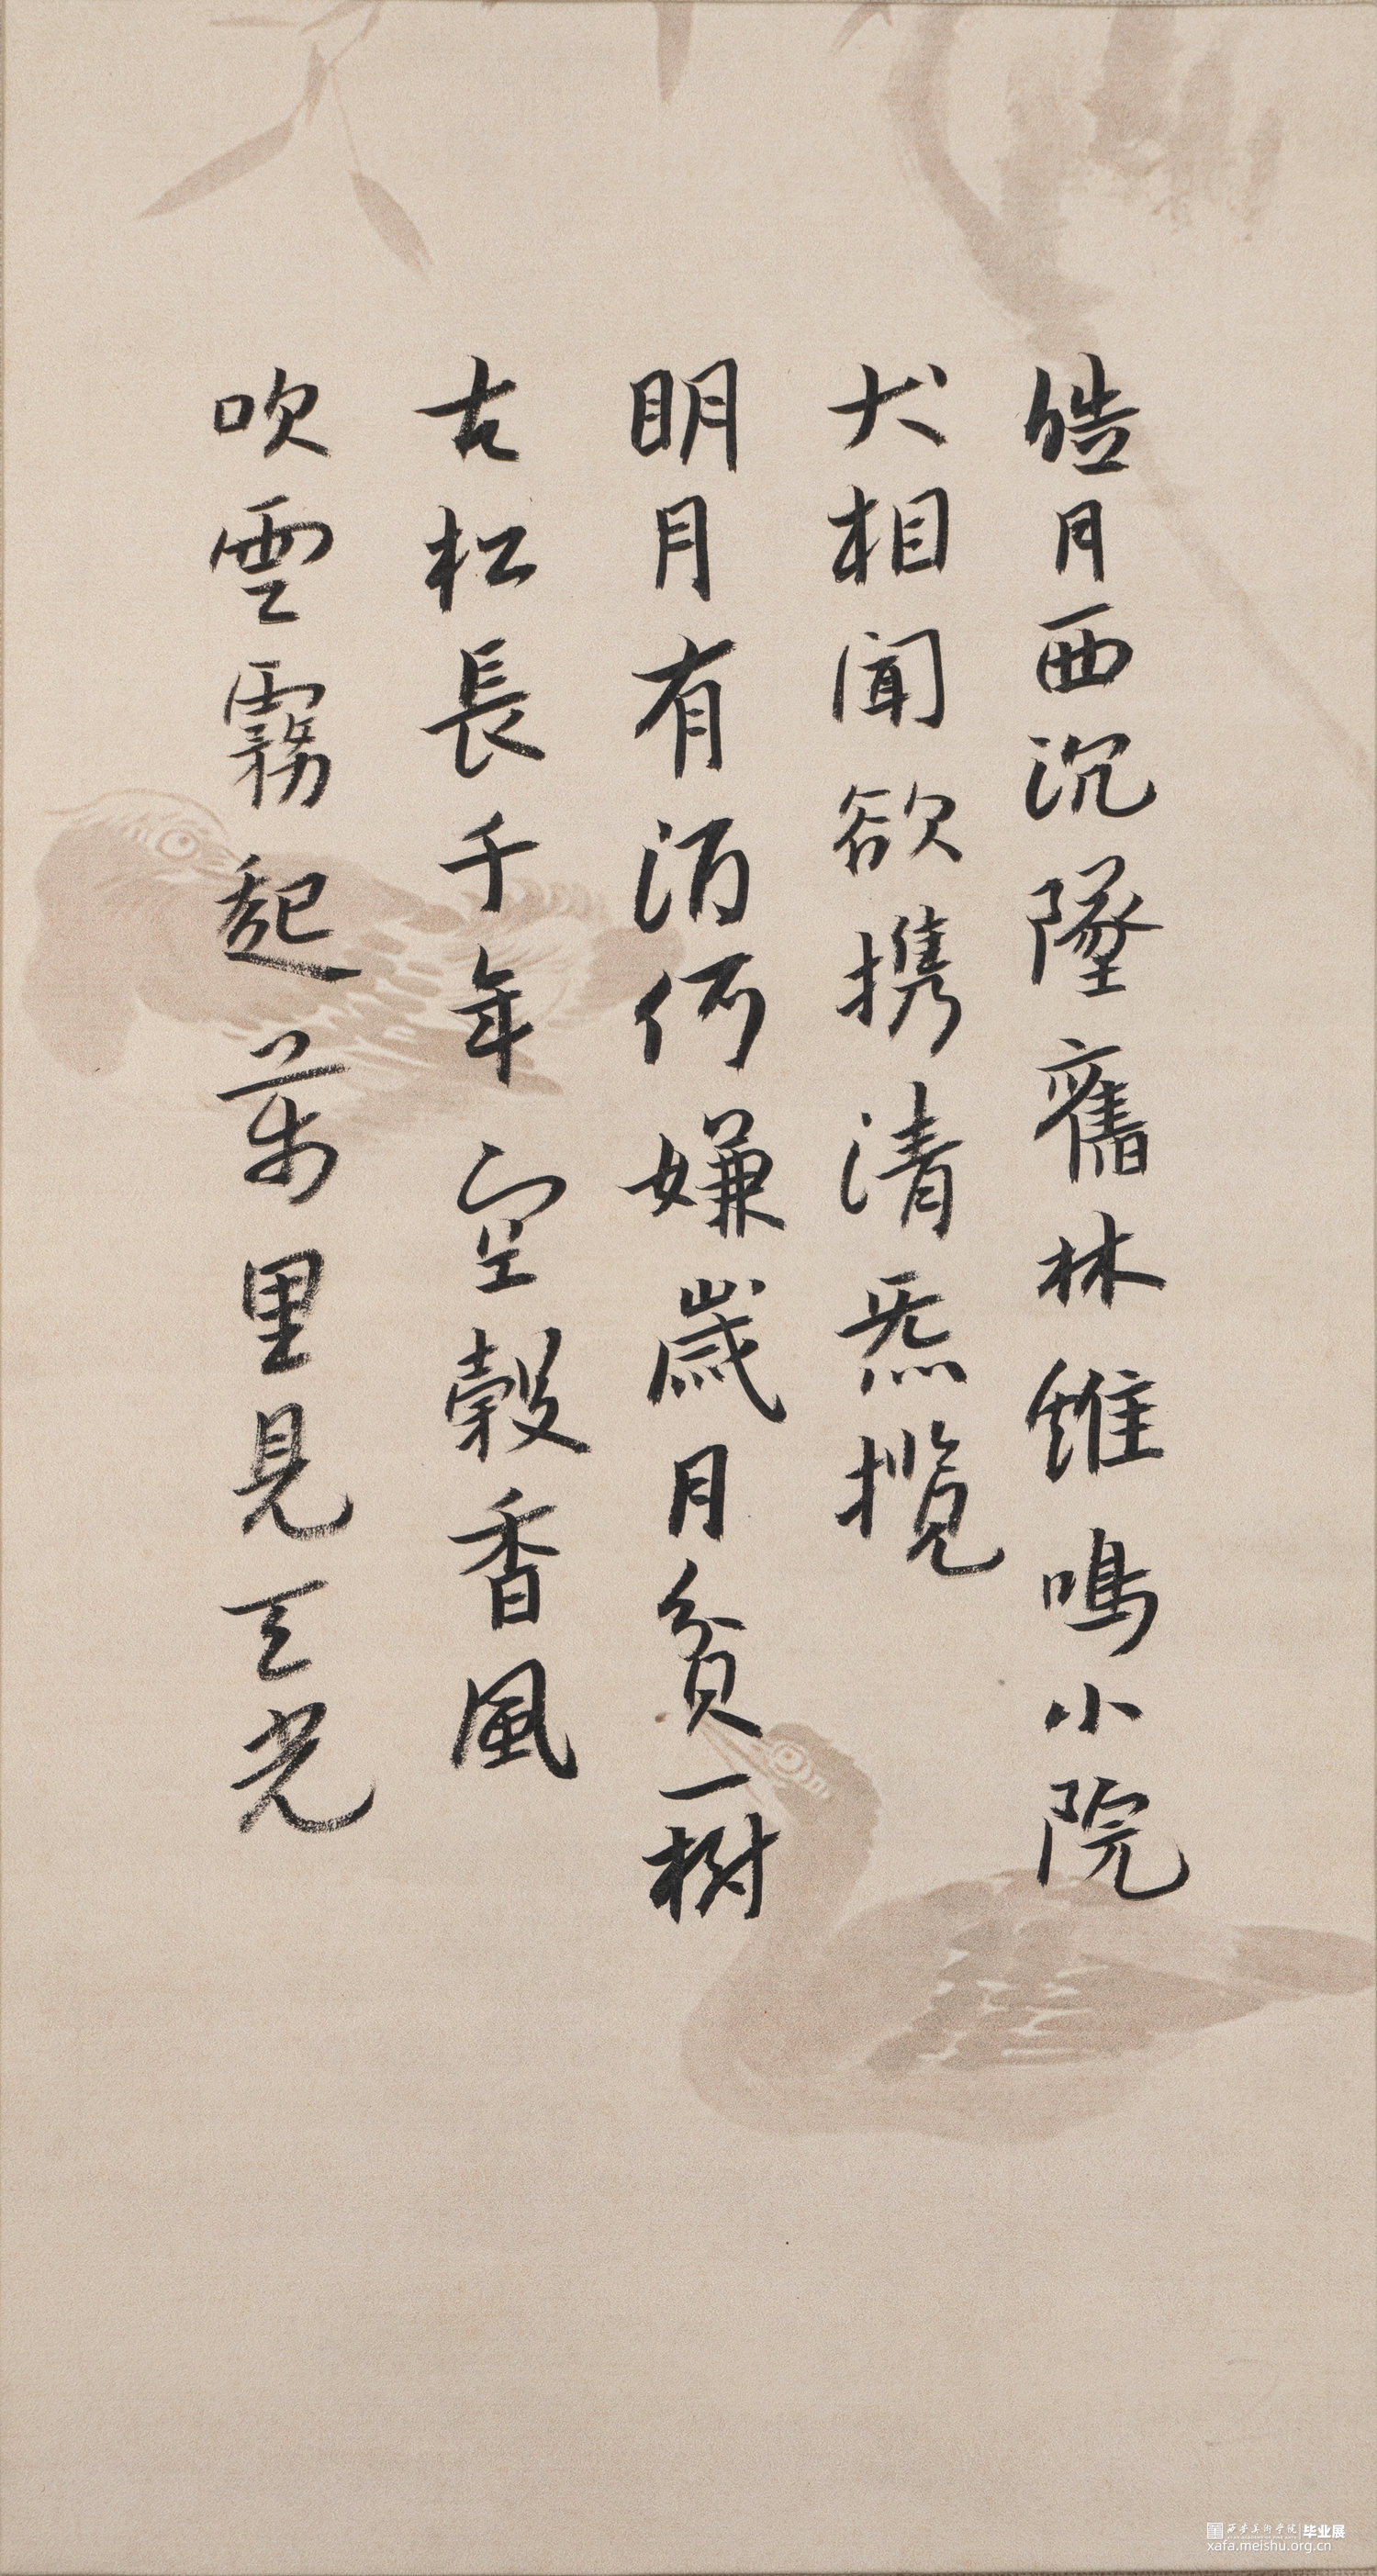 皓月西沉墜舊林雉鳴小院
犬相聞欲携清炁攬
明月有酒何嫌歲月貧一樹
古松長千年空穀香風
吹雲霧起萬里見天光
西安美術學院 毕业展
xafa.meishu.org.cn